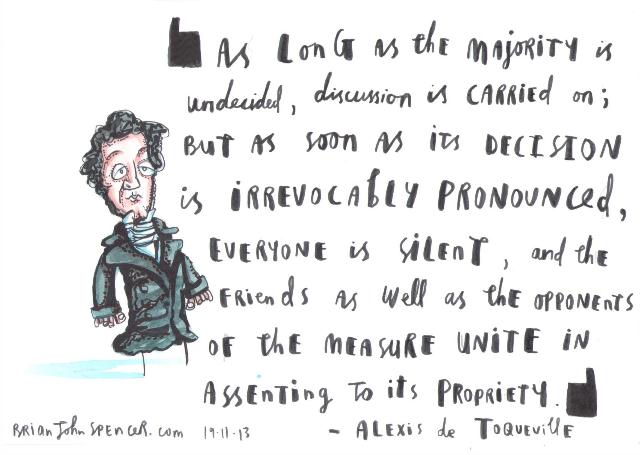 As Long as the majority is
undecided, discussion is carried on;
But as soon as its decision
is irrevocably pronounced,
everyone is silent, and the
friends as well as the opponents
of the measure unite in
assenting to its propriety.
BrianJohnSpencer.com 19-11-13 - Alexis de Toqueville